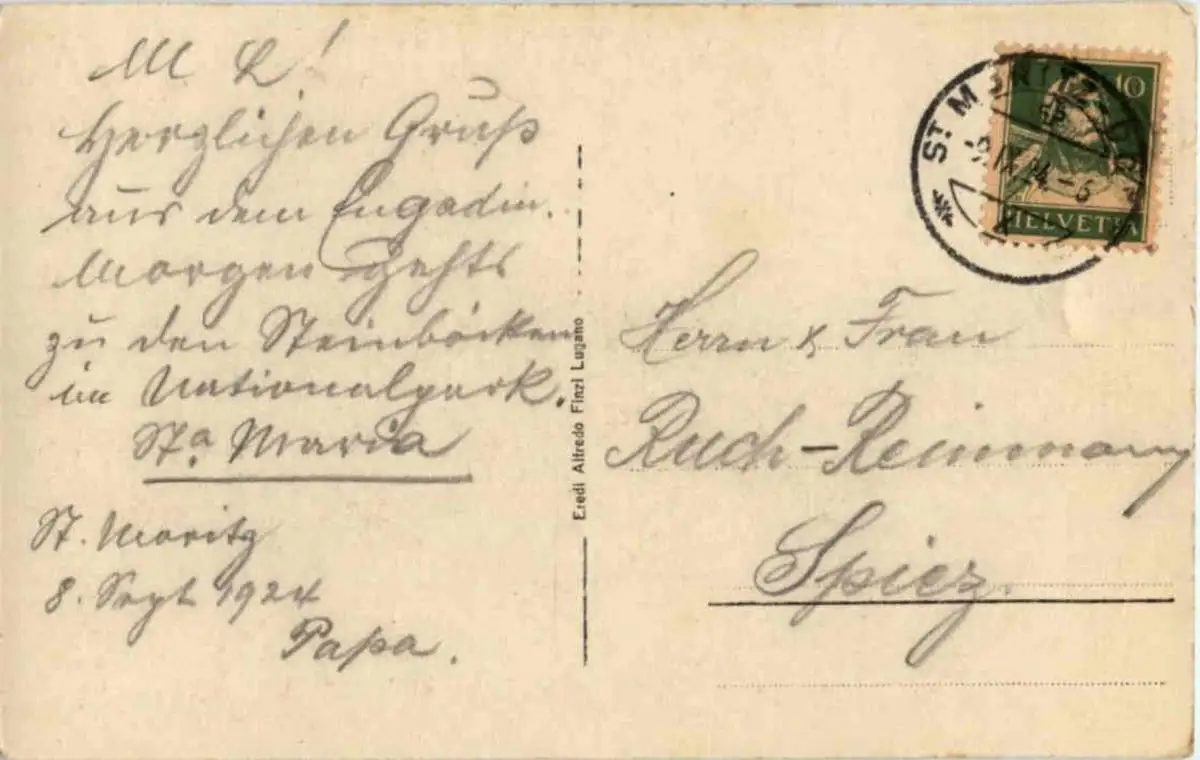 M L!
Herzlichen Gruß
aus dem Engadin.
Morgen gehts
zu den Steinböcken
im Nationalpark.
Sta. Maria
St. Moritz
8. Sept 1924
Papa.
Eredi Alfredo Finzi Lugano
ST. MORITZ-
IX. 24.-5
10
HELVETIA
Herrn & Frau
Ruch-Reinmann
Spiez.